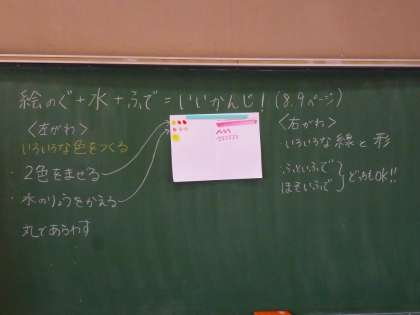 絵のぐ+水+ふで=いいかんじ!(8.9ページ)
〈左がわ〉
いろいろな色をつくる
・2色をまぜる
・水のりょうをかえる
丸であらわす
〈右がわ〉
いろいろな線と形
ふといふで
ほそいふで
どっちもOK!!